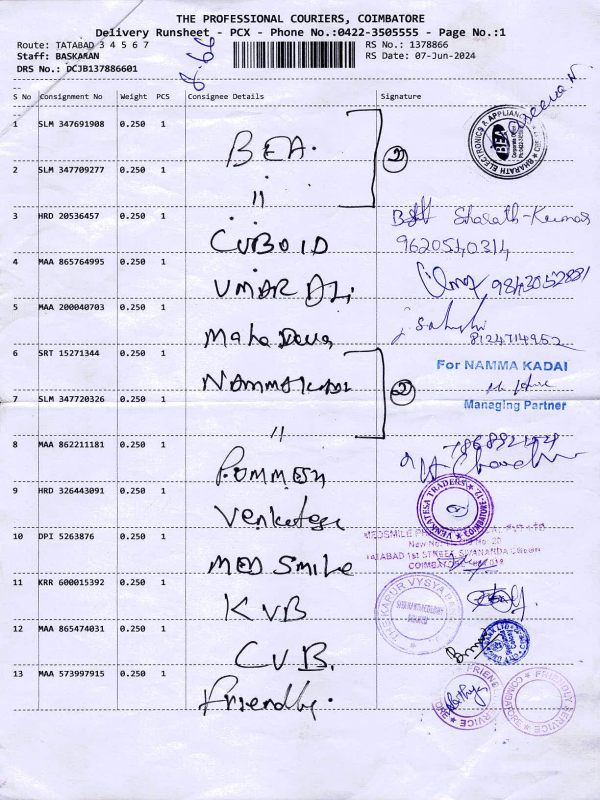 THE PROFESSIONAL COURIERS, COIMBATORE
Delivery Runsheet - PCX - Phone No.:0422-3505555 - Page No.:1
Route: TATABAD 3 4 5 6 7
RS No.: 1378866
Staff: BASKARAN
RS Date: 07-Jun-2024
DRS No.: DCJB137886601
8-66
S No Consignment No Weight PCS Consignee Details Signature
1 SLM 347691908 0.250 1
BEA. 2
BEA
BHARATH ELECTRONICS & APPLIANCES
2 SLM 347709277 0.250 1
"
3 HRD 20536457 0.250 1
CUBOID
Sharath-Kumar
9620540314
4 MAA 865764995 0.250 1
UMAR ALi
9843052881
5 MAA 200040703 0.250 1
8124714952
6 SRT 15271344 0.250 1
NAMMA KADAI 2
For NAMMA KADAI
Managing Partner
7 SLM 347720326 0.250 1
"
8 MAA 862211181 0.250 1
9 HRD 326443091 0.250 1
Venkatesa
VENKATESA TRADERS
COIMBATORE-12
10 DPI 5263876 0.250 1
MED Smile
TATABAD 1st STREET, SIVANANDA COLONY
11 KRR 600015392 0.250 1
KVB
THE KARUR VYSYA BANK
12 MAA 865474031 0.250 1
CUB.
13 MAA 573997915 0.250 1
Friendly.
FRIENDLY SERVICE
COIMBATORE